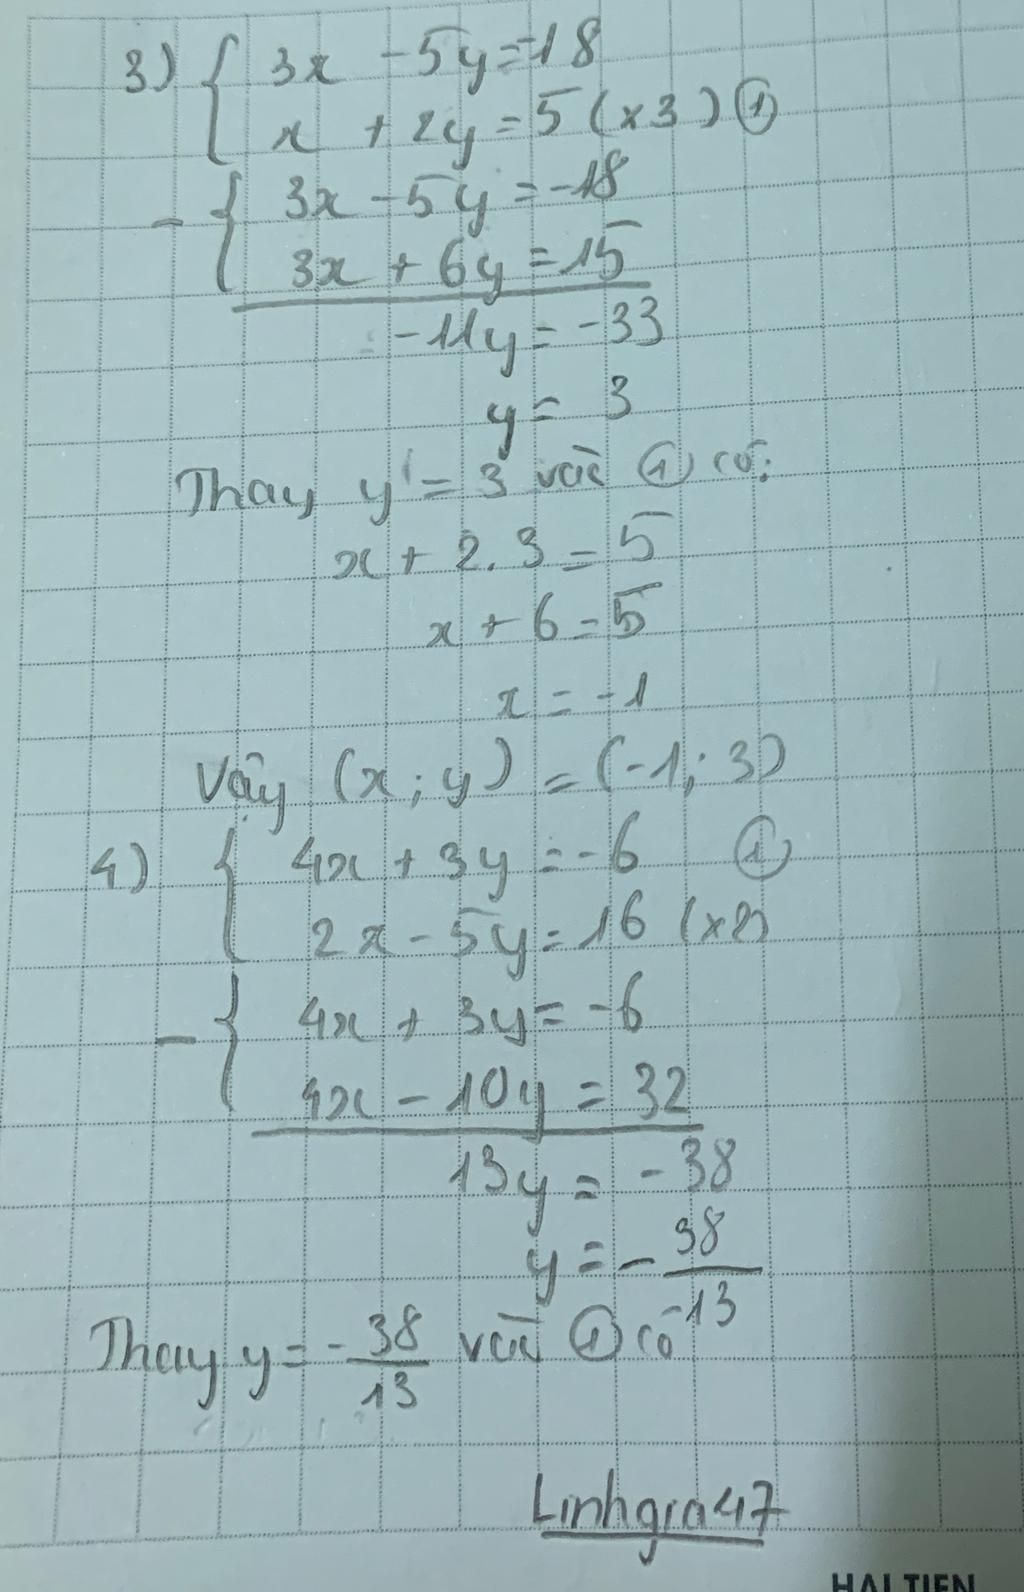 3) { 3x - 5y = -18
x + 2y = 5 (x3) ①
- { 3x - 5y = -18
3x + 6y = 15
-11y = -33
y = 3
Thay y = 3 vào ① có:
x + 2.3 = 5
x + 6 = 5
x = -1
Vậy (x; y) = (-1; 3)
4) { 4x + 3y = -6 ①
2x - 5y = 16 (x2)
- { 4x + 3y = -6
4x - 10y = 32
13y = -38
y = -38/13
Thay y = -38/13 vào ① có
Linhgra47
HAI TIEN